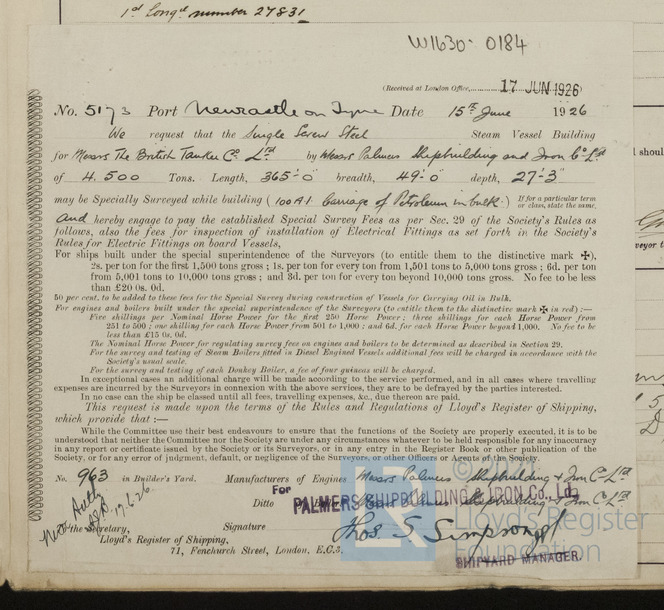 1st Longl number 27831
W1630-0184
(Received at London Office, 17 JUN 1926
No. 5173 Port Newcastle on Tyne Date 15th June 1926
We request that the Single Screw Steel Steam Vessel Building
for Messrs The British Tanker Co Ltd by Messrs Palmers Shipbuilding and Iron Co Ltd
of 4.500 Tons. Length, 365'-0" breadth, 49'-0" depth, 27'-3"
may be Specially Surveyed while building (100A1 Carriage of Petroleum in bulk.) If for a particular term or class, state the same.
And hereby engage to pay the established Special Survey Fees as per Sec. 29 of the Society's Rules as
follows, also the fees for inspection of installation of Electrical Fittings as set forth in the Society's
Rules for Electric Fittings on board Vessels,
For ships built under the special superintendence of the Surveyors (to entitle them to the distinctive mark ✠),
2s. per ton for the first 1,500 tons gross; 1s. per ton for every ton from 1,501 tons to 5,000 tons gross; 6d. per ton
from 5,001 tons to 10,000 tons gross; and 3d. per ton for every ton beyond 10,000 tons gross. No fee to be less
than £20 0s. 0d.
50 per cent. to be added to these fees for the Special Survey during construction of Vessels for Carrying Oil in Bulk.
For engines and boilers built under the special superintendence of the Surveyors (to entitle them to the distinctive mark ✠ in red):—
Five shillings per Nominal Horse Power for the first 250 Horse Power; three shillings for each Horse Power from
251 to 500; one shilling for each Horse Power from 501 to 1,000; and 6d. for each Horse Power beyond 1,000. No fee to be
less than £15 0s. 0d.
The Nominal Horse Power for regulating survey fees on engines and boilers to be determined as described in Section 29.
For the survey and testing of Steam Boilers fitted in Diesel Engined Vessels additional fees will be charged in accordance with the
Society's usual scale.
For the survey and testing of each Donkey Boiler, a fee of four guineas will be charged.
In exceptional cases an additional charge will be made according to the service performed, and in all cases where travelling
expenses are incurred by the Surveyors in connexion with the above services, they are to be defrayed by the parties interested.
In no case can the ship be classed until all fees, travelling expenses, &c., due thereon are paid.
This request is made upon the terms of the Rules and Regulations of Lloyd's Register of Shipping,
which provide that:—
While the Committee use their best endeavours to ensure that the functions of the Society are properly executed, it is to be
understood that neither the Committee nor the Society are under any circumstances whatever to be held responsible for any inaccuracy
in any report or certificate issued by the Society or its Surveyors, or in any entry in the Register Book or other publication of the
Society, or for any error of judgment, default, or negligence of the Surveyors, or other Officers or Agents of the Society.
No. 963 in Builder's Yard. Manufacturers of Engines Messrs Palmers Shipbuilding & Iron Co Ltd
Ditto Messrs Palmers Shipbuilding & Iron Co Ltd
For PALMERS SHIPBUILDING & IRON Co. Ltd.
17.6.26
the Secretary, Signature Thos S Simpson
Lloyd's Register of Shipping,
71, Fenchurch Street, London, E.C.3.
SHIPYARD MANAGER.
© 2021
Lloyd's Register
Foundation